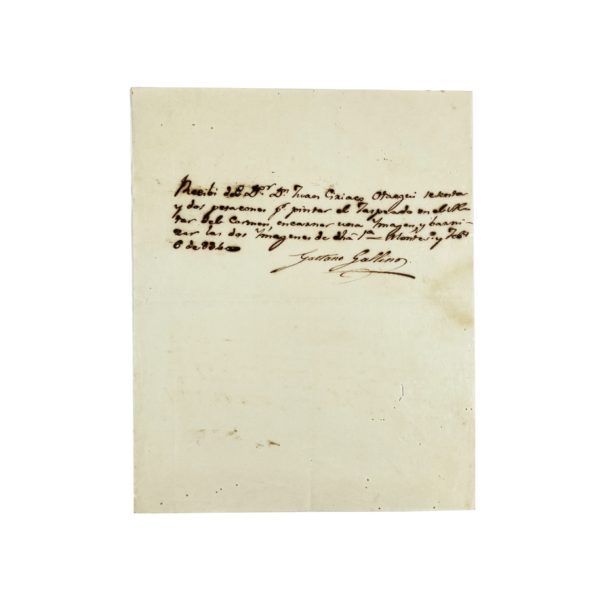 Recibi del Dr. Dn. Juan Ciriaco Otaegui sesenta
y dos patacones pr. pintar el Jaspeado en el Al-
tar del Carmen, encarnar una Imagen, y barni-
zar las dos Imagenes de dha. Montevo. y Febo.
6 de 834
Gaetano Gallino